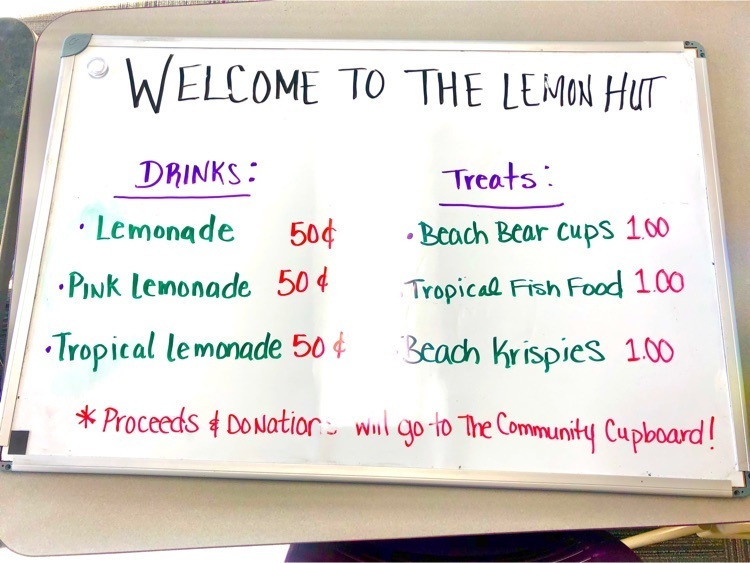 WELCOME TO THE LEMON HUT
DRINKS:
• Lemonade 50¢
• Pink Lemonade 50¢
• Tropical lemonade 50¢
Treats:
• Beach Bear cups 1.00
Tropical Fish Food 1.00
Beach Krispies 1.00
* Proceeds & Donations will go to The Community Cupboard!